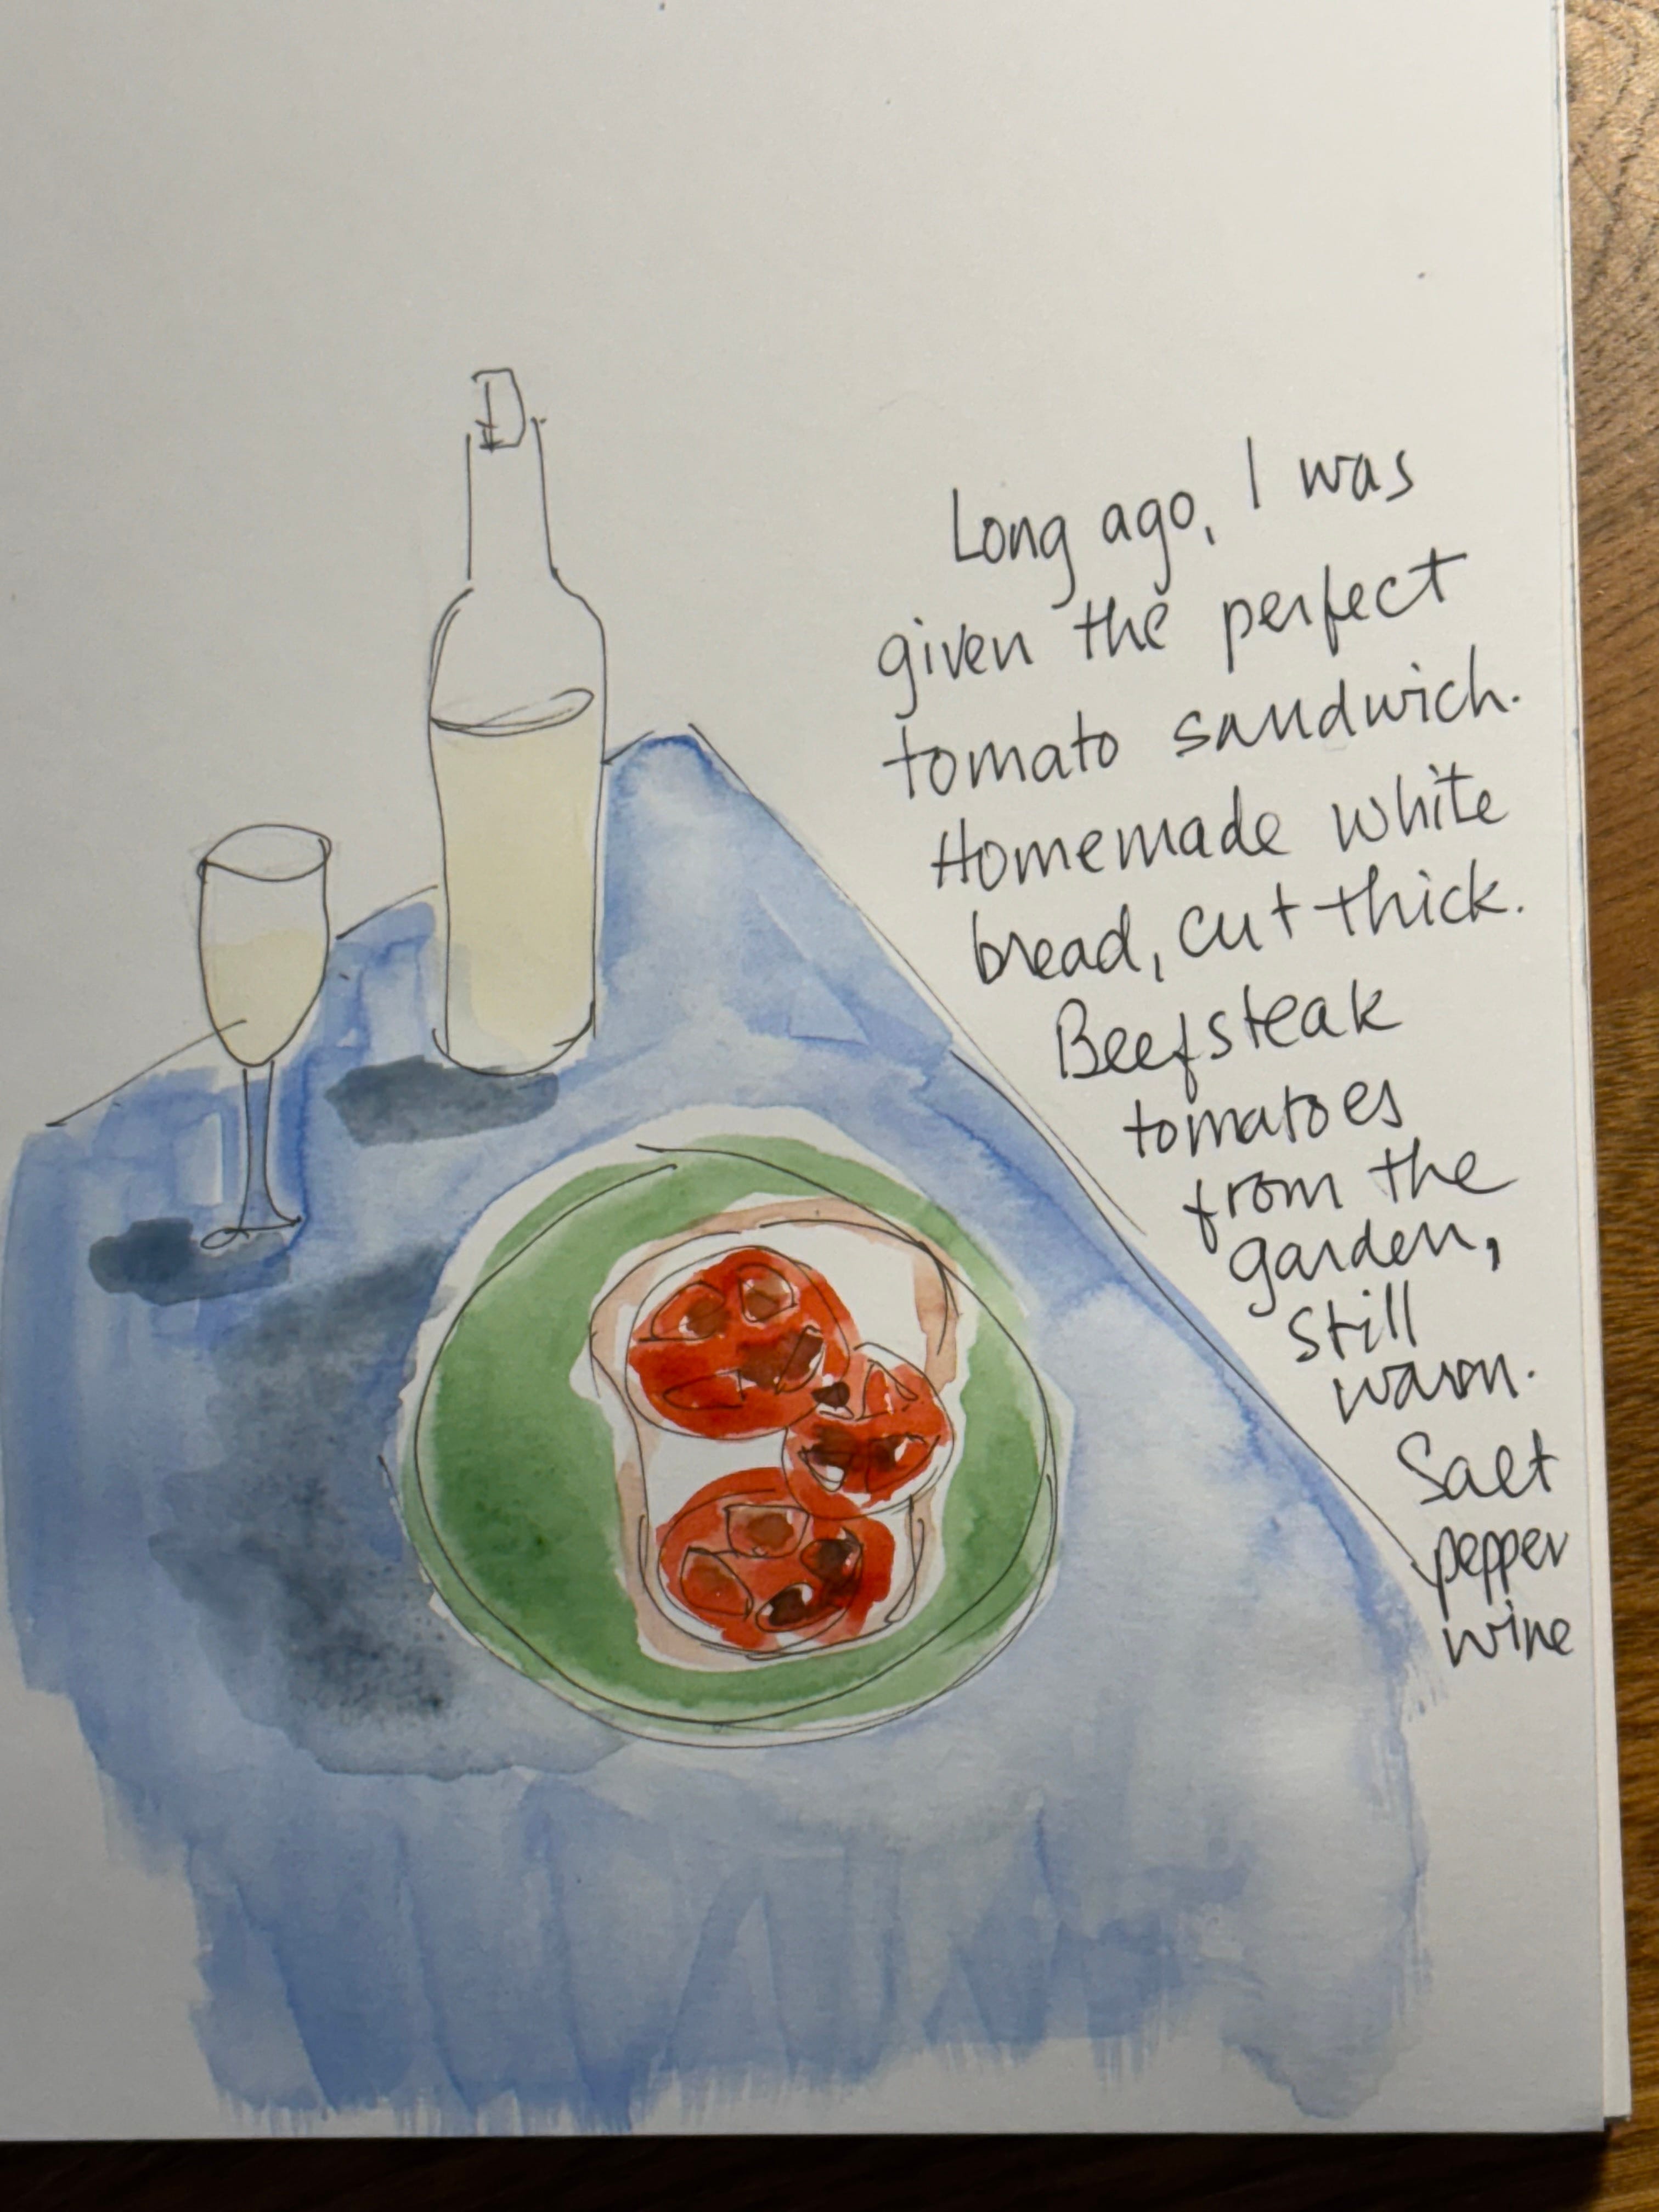 Long ago, I was
given the perfect
tomato sandwich.
Homemade white
bread, cut thick.
Beefsteak
tomatoes
from the
garden,
still
warm.
Salt
pepper
wine